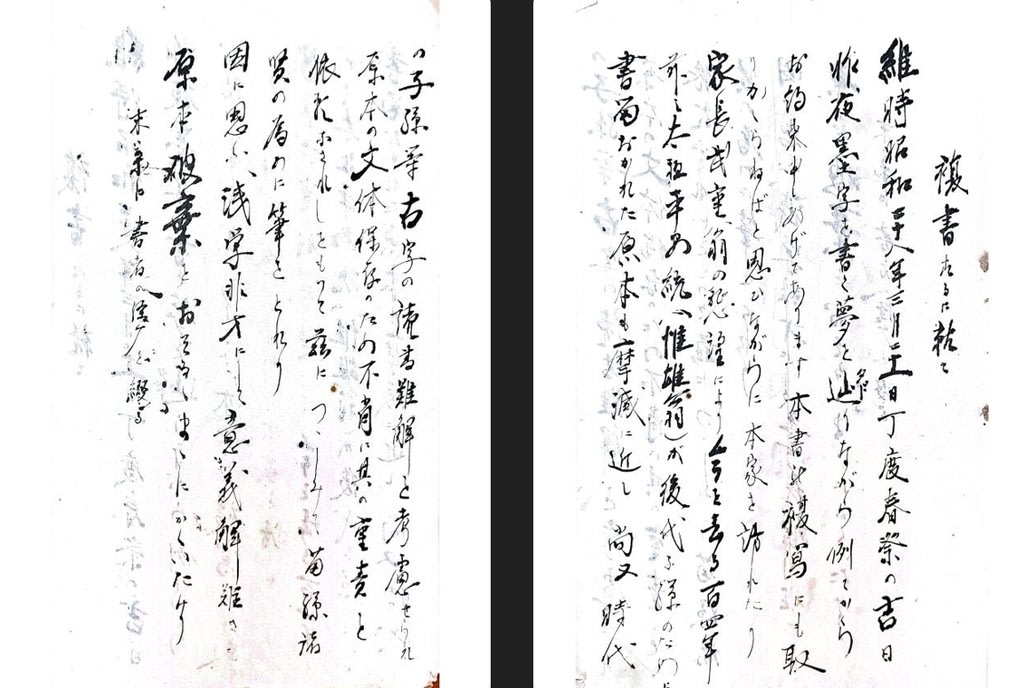 複書するに就て
維時昭和三十八年三月二十一日丁度春祭の吉日
昨夜墨字を書く夢を辿りながら例てから
お約束申し上げてあります本書の複写にも取
りかゝらねばと思ひながらに本家を訪れたり
家長武重翁の懇望により今を去る百四年
前、太祖年男統(惟雄翁)が後代子孫のために
書留おかれた原本も摩滅に近し尚又時代
の子孫等古字の読書難解と考慮せられ
原本の文体保存のため不肖に其の重責と
依頼されしをもって茲につゝしみて留孫諸
賢の為めに筆をとれり
因に思ふ浅学非才にして意義解し難き
原本破棄をおそれしまゝにかくいたり
末葉に書者の